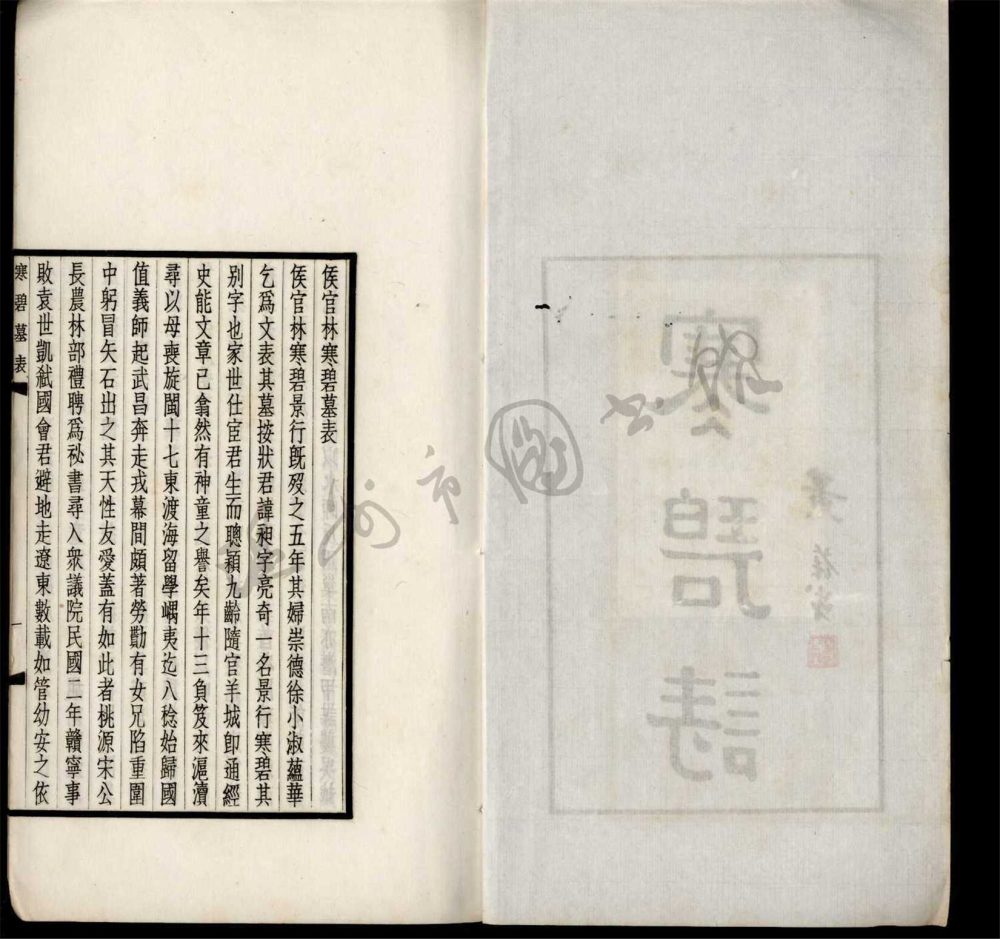 寒碧詩
侯官林寒碧墓表
侯官林寒碧景行既歿之五年其婦崇德徐小淑蘊華
乞爲文表其墓按狀君諱昶字亮奇一名景行寒碧其
別字也家世仕宦君生而聰穎九齡隨官羊城即通經
史能文章已翕然有神童之譽矣年十三負笈來滬瀆
尋以母喪旋閩十七東渡海留學嵎夷迄八稔始歸國
值義師起武昌奔走戎幕間頗著勞勩有女兄陷重圍
中躬冒矢石出之其天性友愛蓋有如此者桃源宋公
長農林部禮聘爲祕書尋入衆議院民國二年贛寧事
敗袁世凱弒國會君避地走遼東數載如管幼安之依
寒碧墓表
一
州市圖書